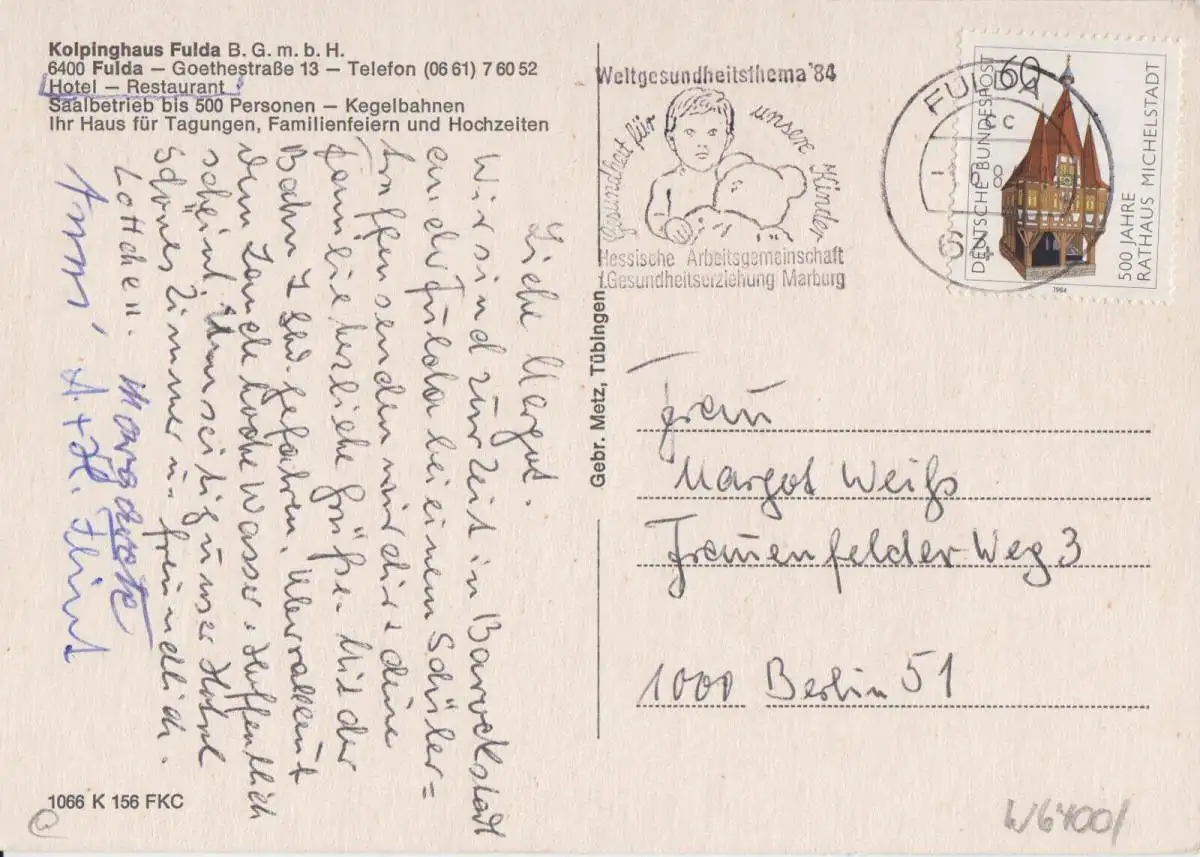 Kolpinghaus Fulda B. G. m. b. H.
6400 Fulda — Goethestraße 13 — Telefon (06 61) 7 60 52
Hotel — Restaurant
Saalbetrieb bis 500 Personen — Kegelbahnen
Ihr Haus für Tagungen, Familienfeiern und Hochzeiten
Liebe Margot.
Wir sind zur Zeit in Barockstadt
Fulda bei einem Schüler=
treffen senden wir dir + deine
Familie herzliche Grüße. Mit der
Bahn gefahren. Überall
dem Lande hohe Wasser. Hoffentlich
scheint Umseitig unser Hotel
Schönes Zimmer u. freundlich.
Lottchen. Margarete
A. + H. Flint
1066 K 156 FKC
Gebr. Metz, Tübingen
Weltgesundheitsthema '84
Gesundheit für unsere Kinder
Hessische Arbeitsgemeinschaft
f.Gesundheitserziehung Marburg
FULDA
c
60
DEUTSCHE BUNDESPOST
500 JAHRE
RATHAUS MICHELSTADT
1984
Frau
Margot Weiß
Frauenfelder Weg 3
1000 Berlin 51
W6400/